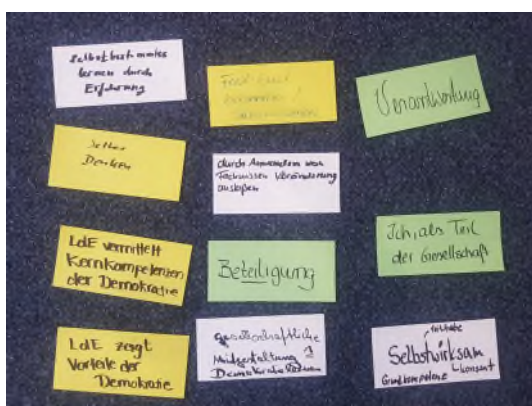 Selbstbestimmtes
lernen durch
Erfahrung
Selber
Denken
LdE vermittelt
Kernkompetenzen
der Demokratie
LdE zeigt
Vorteile der
Demokratie
durch Anwenden von
Fachwissen Veränderung
auslösen
Beteiligung
gesellschaftliche
Mitgestaltung
Verantwortung
Ich, als Teil
der Gesellschaft
Teilhabe
Selbstwirksam